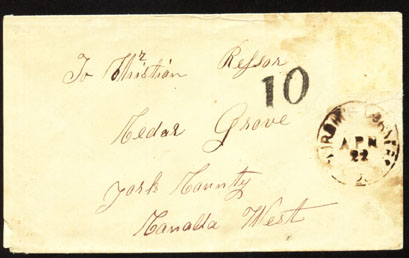 To Mr Christian Ressor
10
Cedar Grove
APR
22
York County
Canada West